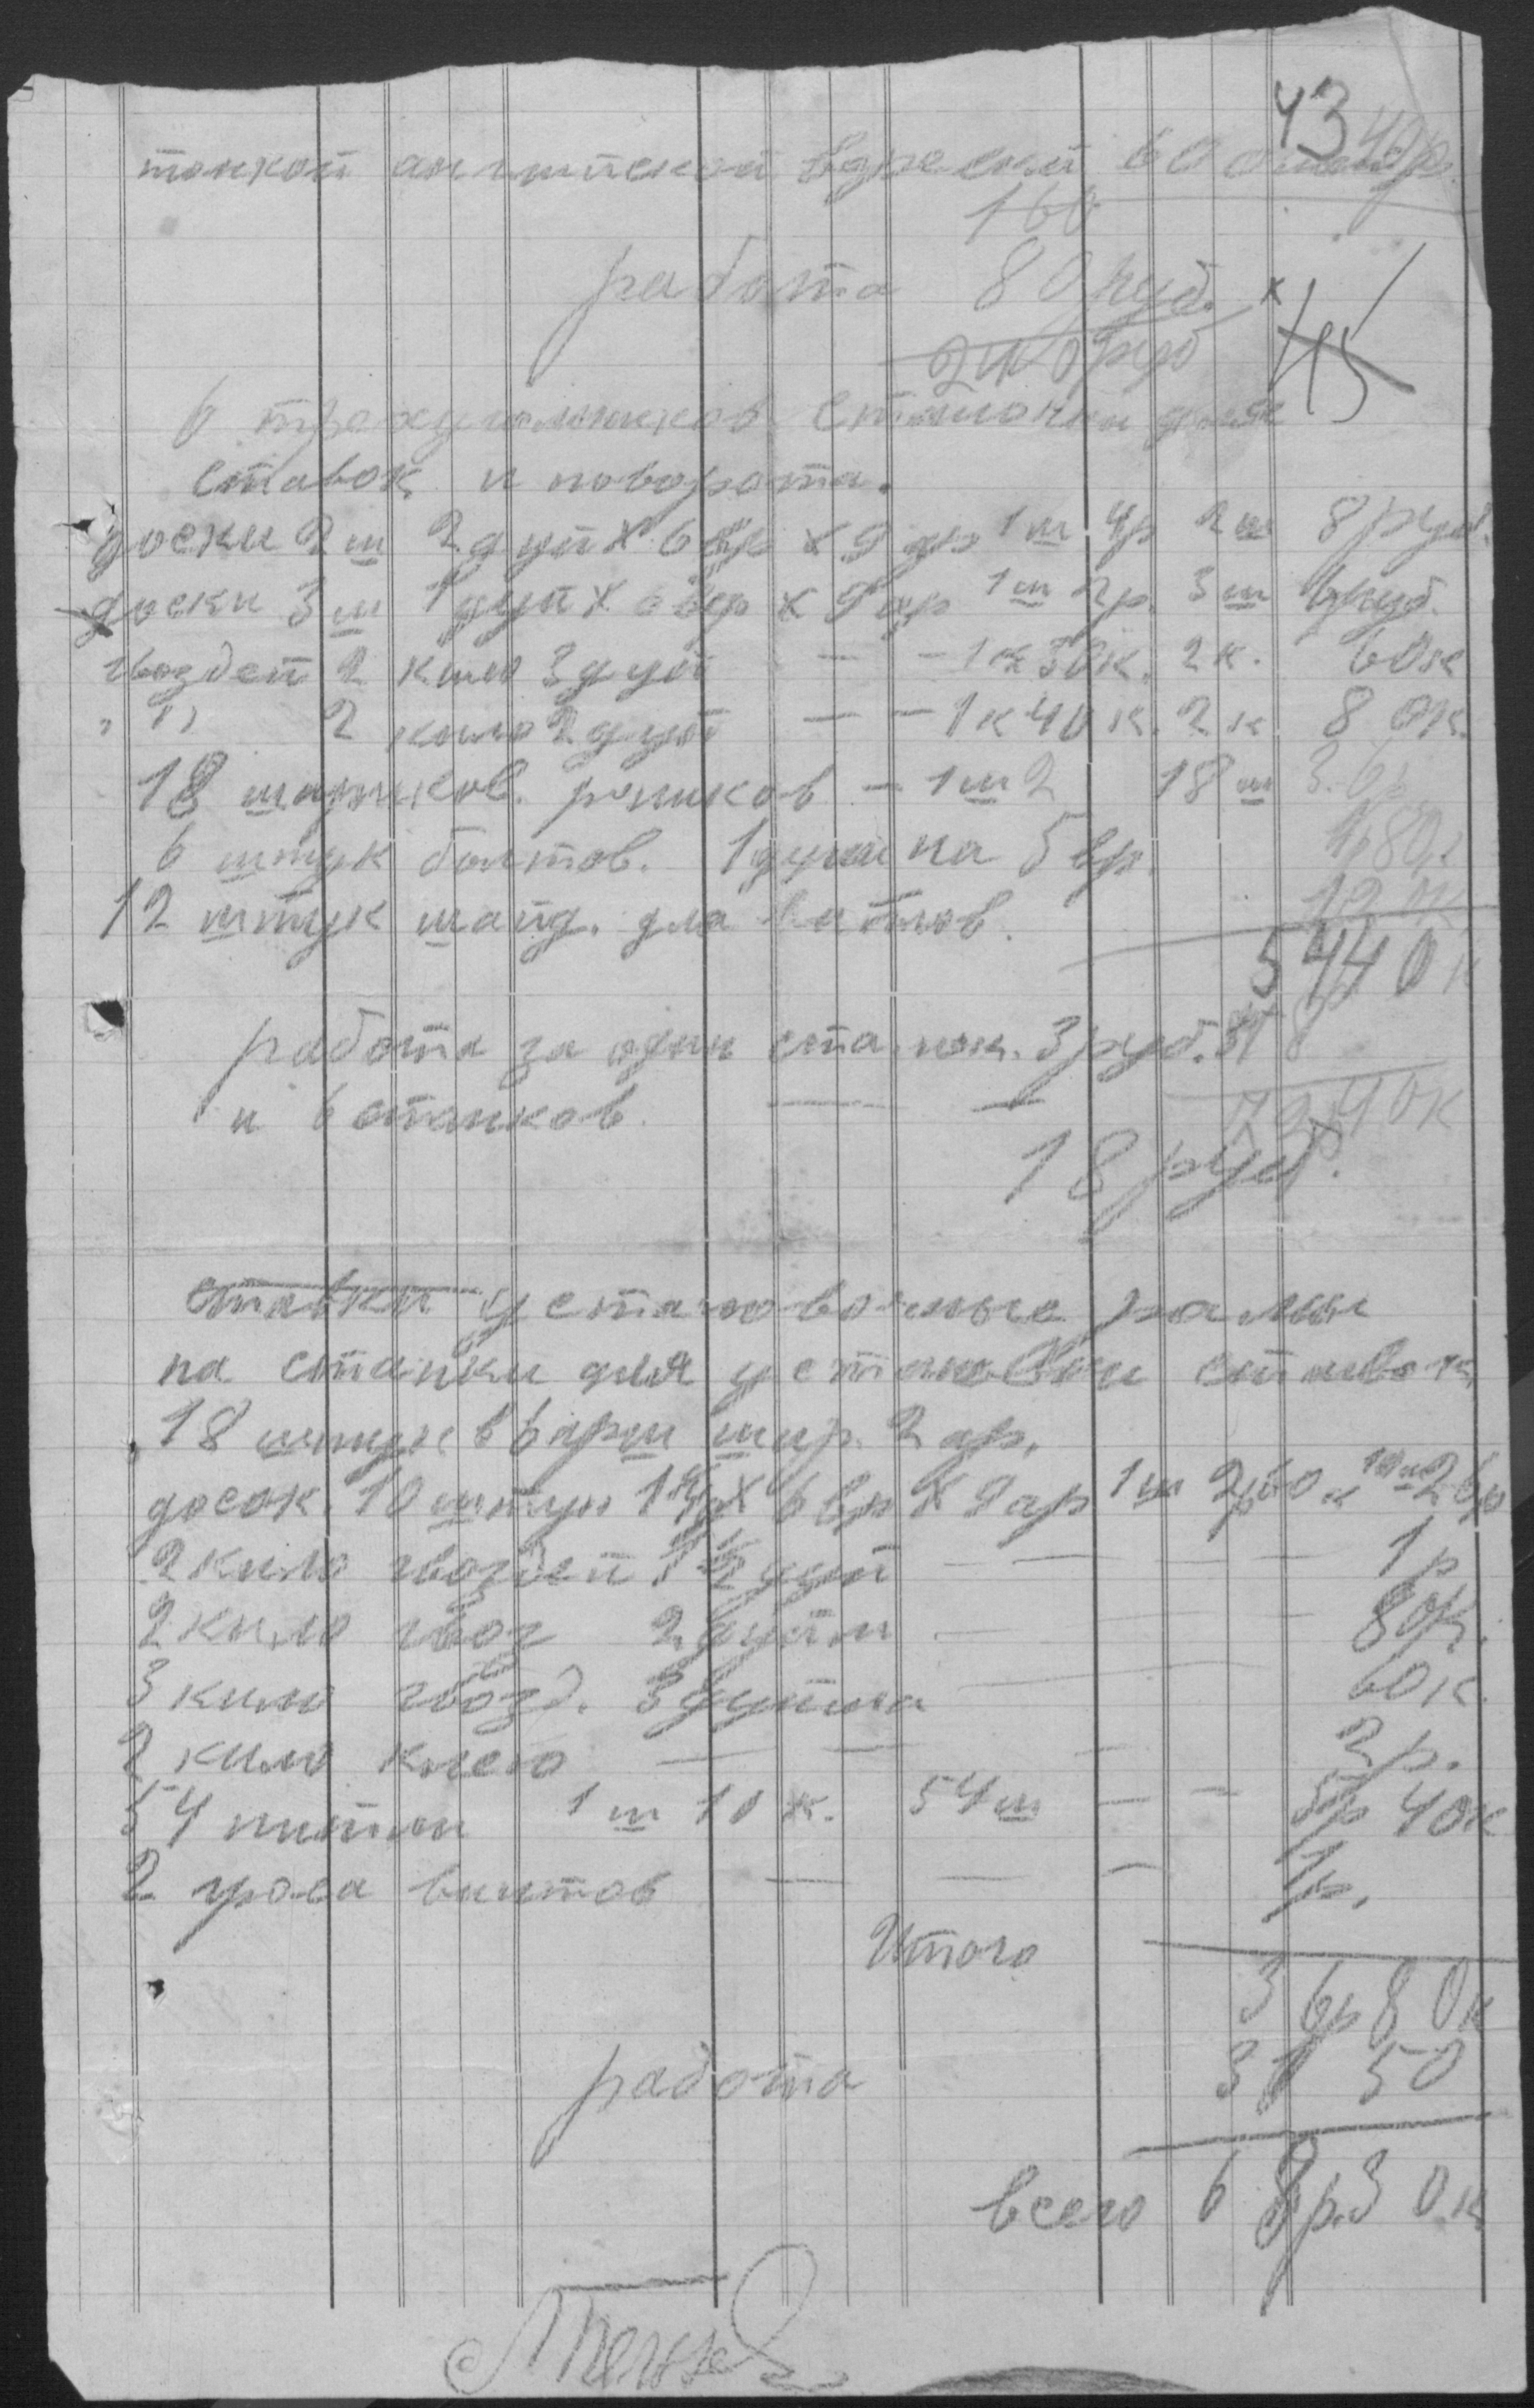 43
тонкой английской
160
работа 80 руб.
240 руб
45
6 треугольников
ставок и поворота.
доски 2 ш 2 дуй х 6 вер х 9 ар 1 ш 4р 2 ш 8 руб.
доски 3 ш 1 дуй х 6 вер х 9 ар 1 ш 2р. 3 ш 6 руб.
гвоздей 2 кило 3 дуй — — 1 к 30 к. 2 к. 60 к
" " 2 кило 2 дуй — — 1 к 40 к. 2 к 80 к.
18 шариков. роликов — 1 ш 2 18 ш 36р
6 штук болтов. 1 дуйм на 5 вр. 1р 80к
12 штук шайд. для балтов. 120к
54р 40 к
работа за один станок. 3 руб. 18
и 6 станков. — — 72р 40к
18 руб.
ставки установочные рамы
на станки для установки ставок
18 штук в 6 арш шир. 2 ар.
досок. 10 штук 1 ½ х 6 вр х 9 ар 1 ш 2р 60 к 10 ш 26р
2 кило гвоздей 1 ½ дуй — — — 1 р
2 кило гвоз 2 дуйм — — 80к.
3 кило гвозд. 3 дуйма — 60 к.
2 кило клею — — — 2 р.
54 1 ш 10 к. 54 ш — — 5р 40к
2 гроса винтов — — — 1р.
Итого
36р 80к
работа 31 50
всего 68р. 30.к